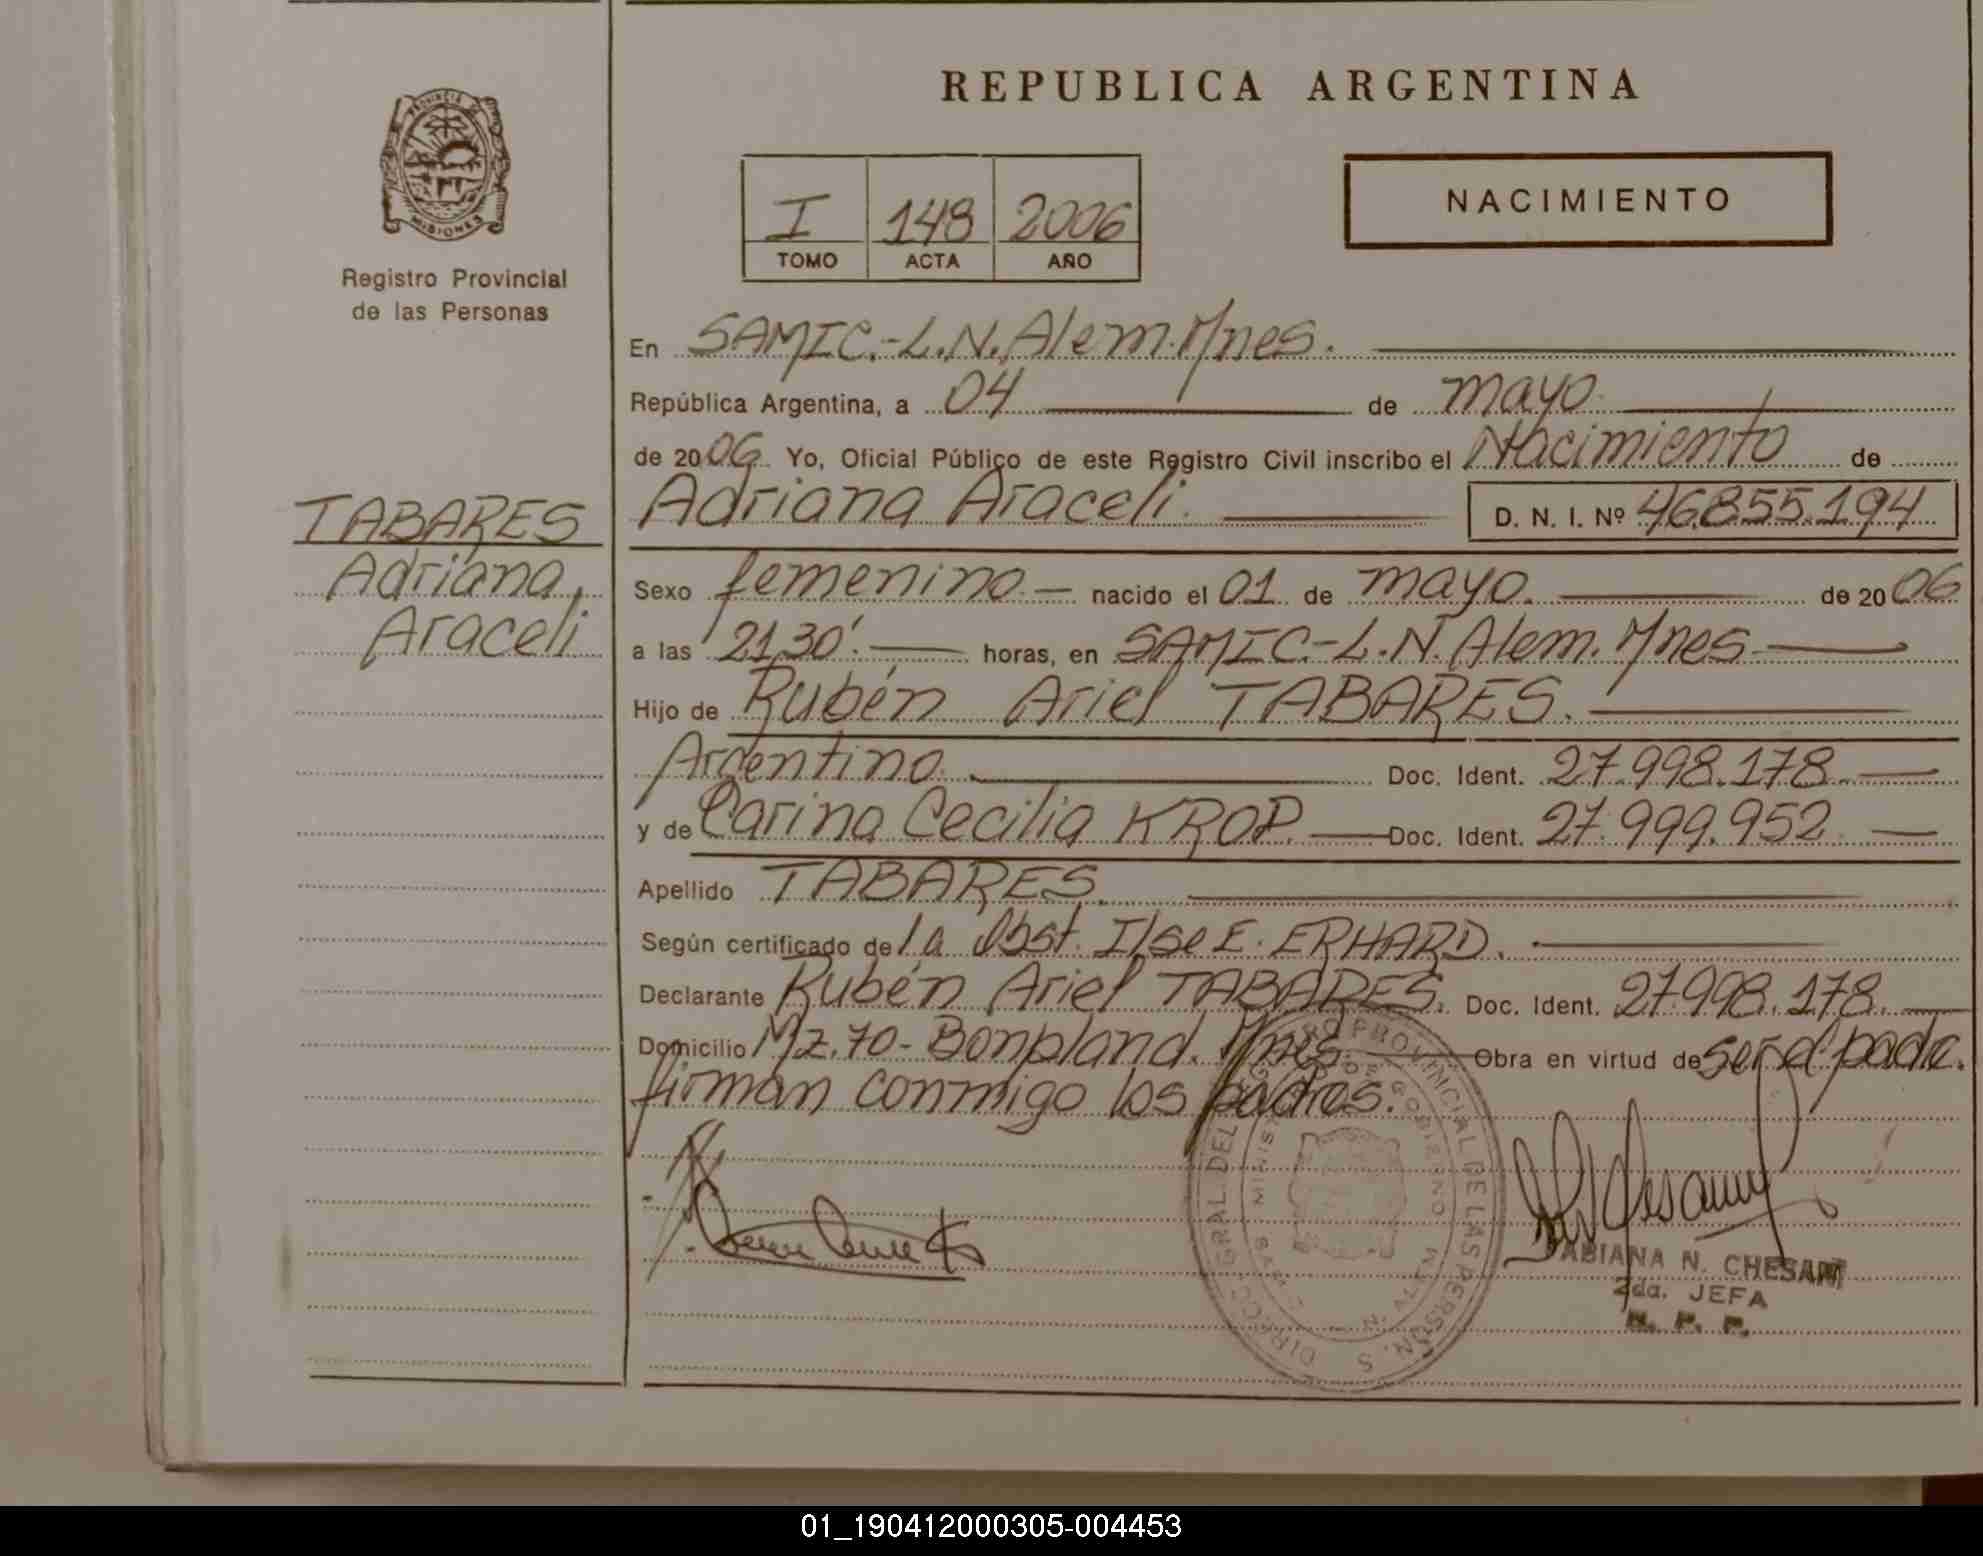 REPUBLICA ARGENTINA
PROVINCIA
MISIONES
Registro Provincial
de las Personas
I 148 2006
TOMO ACTA AÑO
NACIMIENTO
En SAMIC.-L.N.Alem.Mnes.
República Argentina, a 04 de mayo
de 2006 Yo, Oficial Público de este Registro Civil inscribo el Nacimiento de
Adriana Araceli. D. N. I. Nº 46.855.194
TABARES
Adriana
Araceli
Sexo femenino nacido el 01 de mayo. de 2006
a las 21,30'. horas, en SAMIC.-L.N.Alem.Mnes
Hijo de Rubén Ariel TABARES.
Argentino. Doc. Ident. 27.998.178
y de Carina Cecilia KROP. Doc. Ident. 27.999.952
Apellido TABARES.
Según certificado de la Obst. Ilse E. ERHARD.
Declarante Rubén Ariel TABARES. Doc. Ident. 27.998.178.
Domicilio Mz.70- Bonpland. Mnes. Obra en virtud de ser el padre.
firman conmigo los padres.
DIRECC. GRAL. DEL REGISTRO PROVINCIAL DE LAS PERSONAS
FABIANA N. CHESANI
2da. JEFA
R. P. P.
01_190412000305-004453